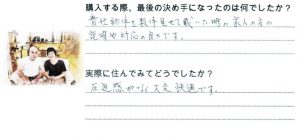 購入する際、最後の決め手になったのは何でしたか？
貴社物件を数件見せて戴いた時の案内の方の
説明や対応の良さです。
実際に住んでみてどうでしたか？
圧迫感がなく大変快適です。